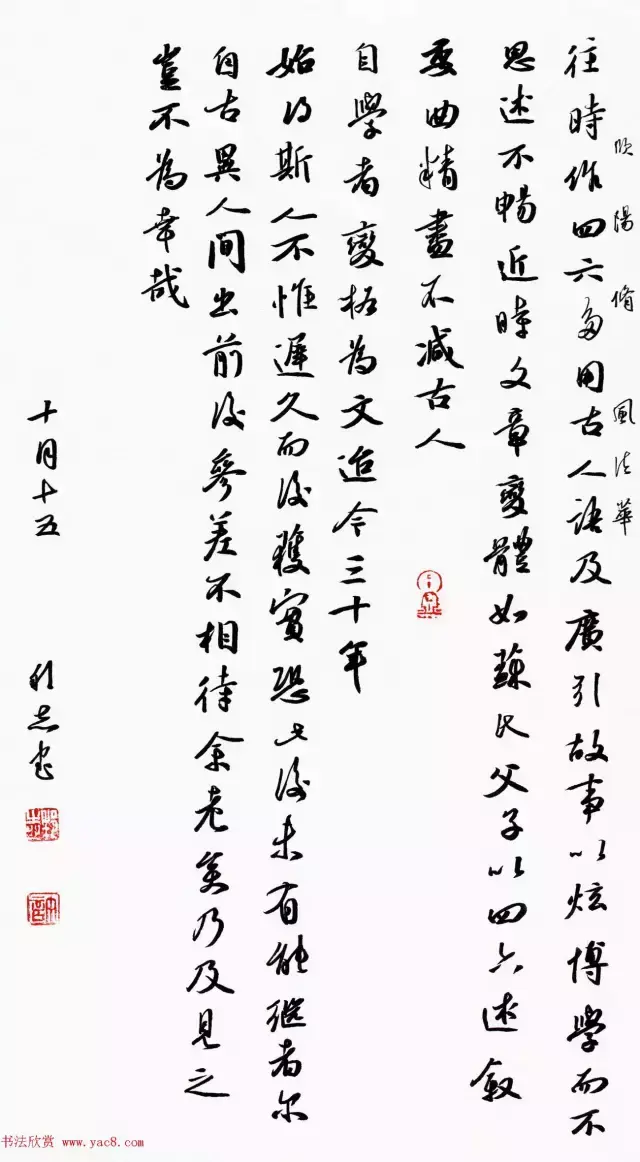 歐陽脩 風法華
往時作四六多用古人語及廣引故事以炫博學而不
思述不暢近時文章變體如蘇氏父子以四六述敘
委曲精盡不減古人
自學者變格為文迨今三十年
始得斯人不惟遲久而後獲實恐此後未有能繼者尔
自古異人間出前後參差不相待余老矣乃及見之
豈不為幸哉
十月十五
书法欣赏 www.yac8.com